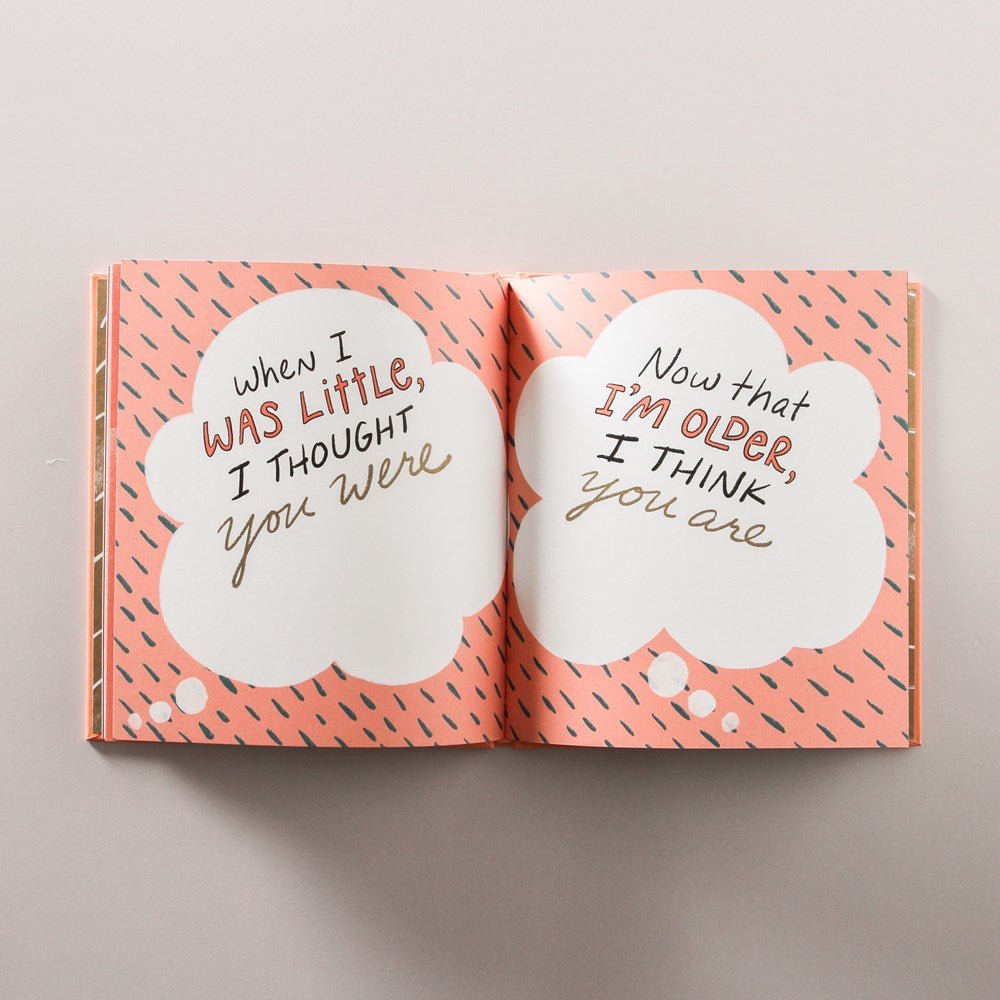 When I
WAS LittLe,
I THOUGHT
you were
Now that
I'M OLDER,
I THINK
you are